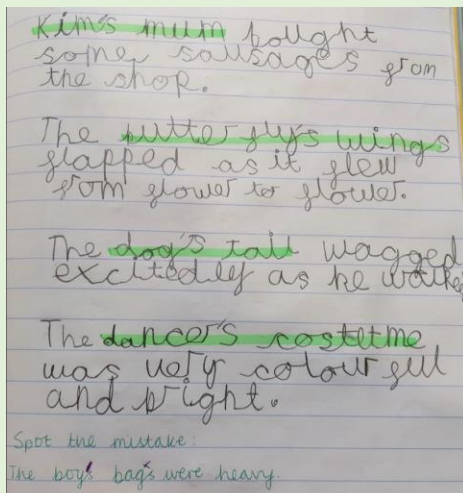 Kim's mum bought
some sausages from
the shop.
The butterfly's wings
flapped as it flew
from flower to flower.
The dog's tail wagged
excitedly as he walked
The dancer's costume
was very colourful
and bright.
Spot the mistake:
The boy's bag's were heavy.